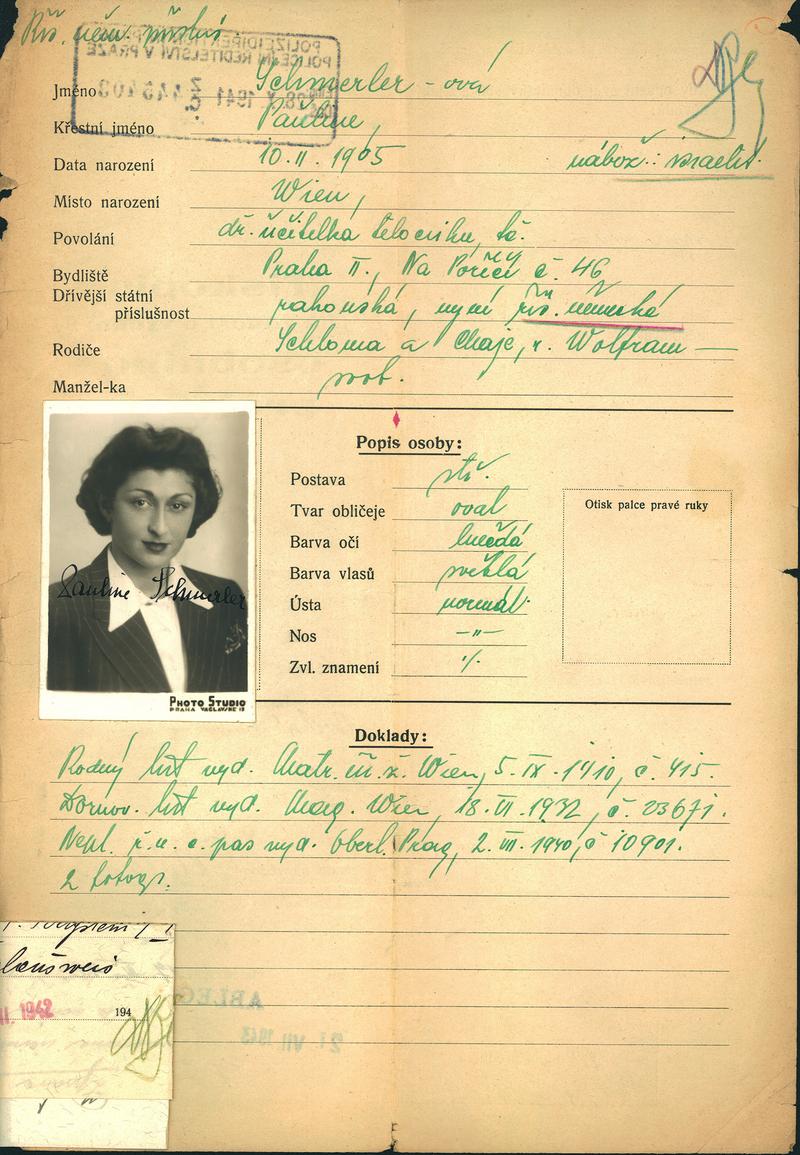 Říš. něm. přísluš.
POLIZEIDIREKTION
POLICEJNÍ ŘEDITELSTVÍ V PRAZE
28. X. 1941
Jméno Schmerler - ová
Křestní jméno Pauline,
Data narození 10. II. 1905 nábož.: israelit.
Místo narození Wien,
Povolání dř. učitelka tělocviku, tč.
Bydliště Praha II., Na Poříčí č. 46
Dřívější státní
příslušnost rakouská, nyní říš. německá
Rodiče Schloma a Chaje, r. Wolfram —
Manžel-ka svob.
Popis osoby:
Postava stř.
Tvar obličeje oval
Barva očí hnědá
Barva vlasů světlá
Ústa normál.
Nos —"—
Zvl. znamení ./.
Otisk palce pravé ruky
Pauline Schmerler
PHOTO STUDIO
PRAHA VÁCLAVSKÉ
Doklady:
Rodný list vyd. Matr. úř. ž. Wien, 5. IX. 1910, č. 415.
Domov. list vyd. Mag. Wien, 18. VI. 1932, č. 23671.
Nepl. ř. n. c. pas vyd. Oberl. Prag, 2. III. 1940, č 10901.
2 fotogr.
II. 1942 194
21 VII 1943